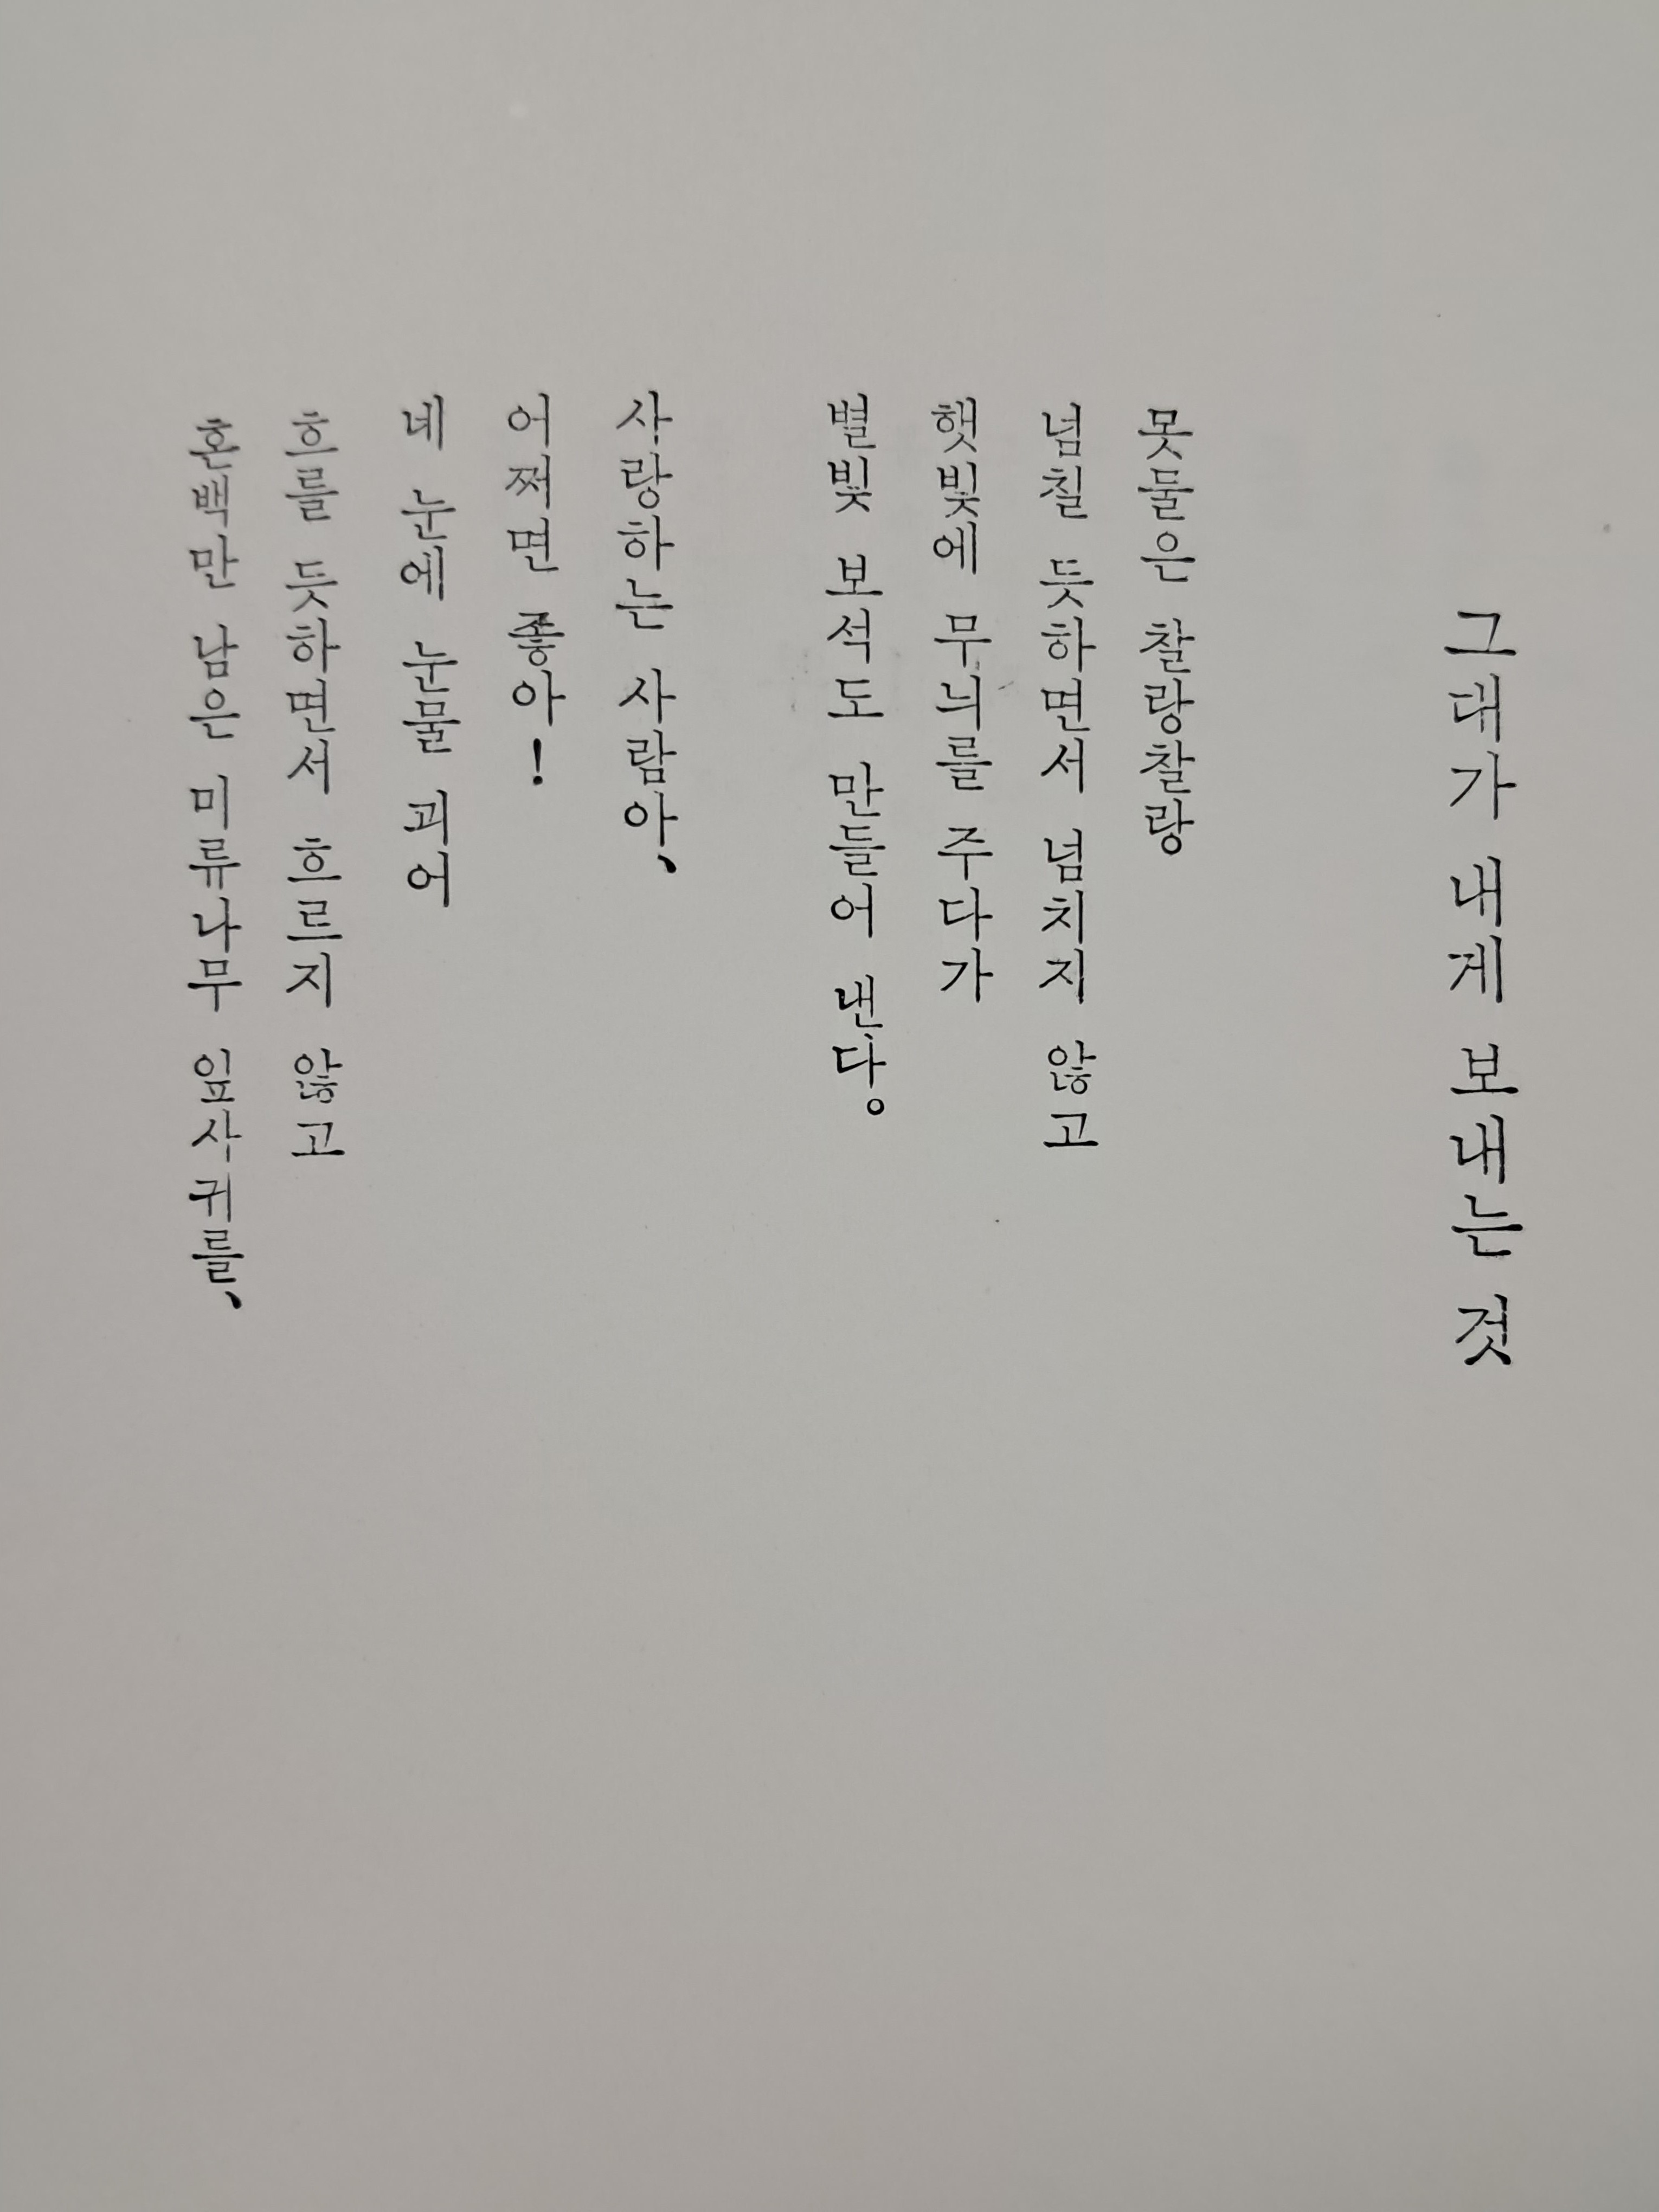 그대가 내게 보내는 것
못물은 찰랑찰랑
넘칠 듯하면서 넘치지 않고
햇빛에 무늬를 주다가
별빛 보석도 만들어 낸다。
사랑하는 사람아、
어쩌면 좋아!
네 눈에 눈물 괴어
흐를 듯하면서 흐르지 않고
혼백만 남은 미류나무 잎사귀를、